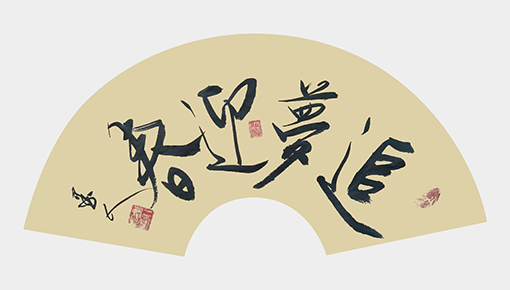 追夢迎春